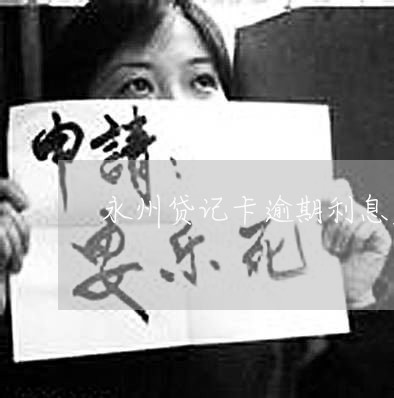 申請：
永州贷记卡逾期利息
安乐死